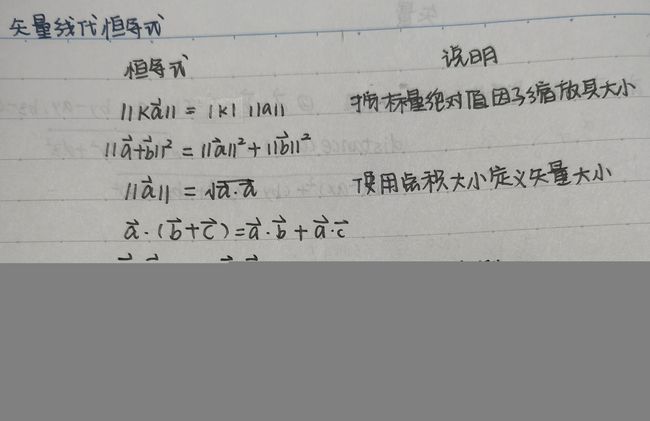 矢量线代恒等式
恒等式 说明
||k\vec{a}|| = |k| ||a|| 按标量绝对值因子缩放其大小
||\vec{a}+\vec{b}||² = ||\vec{a}||² + ||\vec{b}||²
||\vec{a}|| = √(\vec{a}·\vec{a}) 使用点积大小定义矢量大小
\vec{a}·(\vec{b}+\vec{c}) = \vec{a}·\vec{b} + \vec{a}·\vec{c}